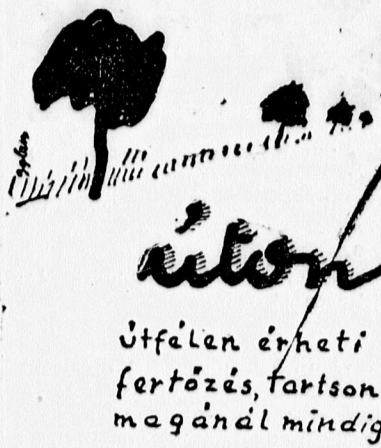 úton
útfélen érheti
fertőzés, tartson
magánál mindig